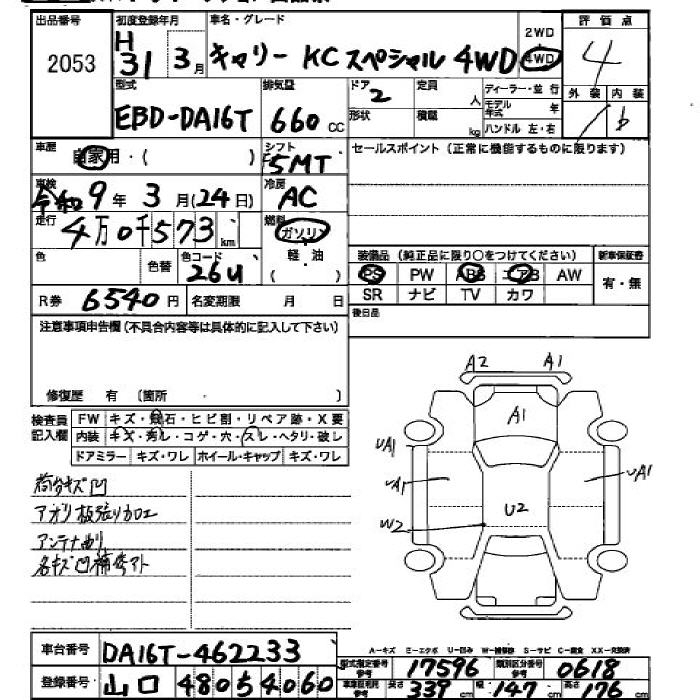 出品番号 初度登録年月 車名・グレード 2WD 評価点
2053 H31 3月 キャリー KCスペシャル 4WD 4WD 4
型式 排気量 ドア 定員 ディーラー・並行 外装 内装
EBD-DA16T 660cc 2 人 モデル年式 年 b
形状 積載 kg ハンドル 左・右
車歴 自家用・( ) シフト F5MT セールスポイント (正常に機能するものに限ります)
車検 令和9年3月(24日) 冷房 AC
走行 4万0千573km 燃料 ガソリン
色 色替 色コード 26U 軽・油 ( )
装備品 (純正品に限り○をつけてください) 新車保証書
PS PW ABS エアB AW 有・無
SR ナビ TV カワ
R券 6540円 名変期限 月 日 後日品
注意事項申告欄 (不具合内容等は具体的に記入して下さい)
修復歴 有 (箇所 )
検査員記入欄 FW キズ・飛石・ヒビ割・リペア跡・X要
内装 キズ・汚レ・コゲ・穴・スレ・ヘタリ・破レ
ドアミラー キズ・ワレ ホイール・キャップ キズ・ワレ
荷台キズ凹
アオリ板張り加工
アンテナ曲り
各キズ凹補修アト
A2 A1
A1
UA1 UA1 UA1
W2 U2
A-キズ E-エクボ U-凹み W-補修跡 S-サビ C-腐食 XX-交換済
車台番号 DA16T-462233 型式指定番号 参考 17596 類別区分番号 参考 0618
登録番号 山口 480 ち 4060 長さ 339cm 幅 147cm 高さ 176cm